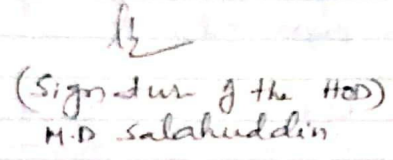 (Signature of the HOD)
M.D Salahuddin